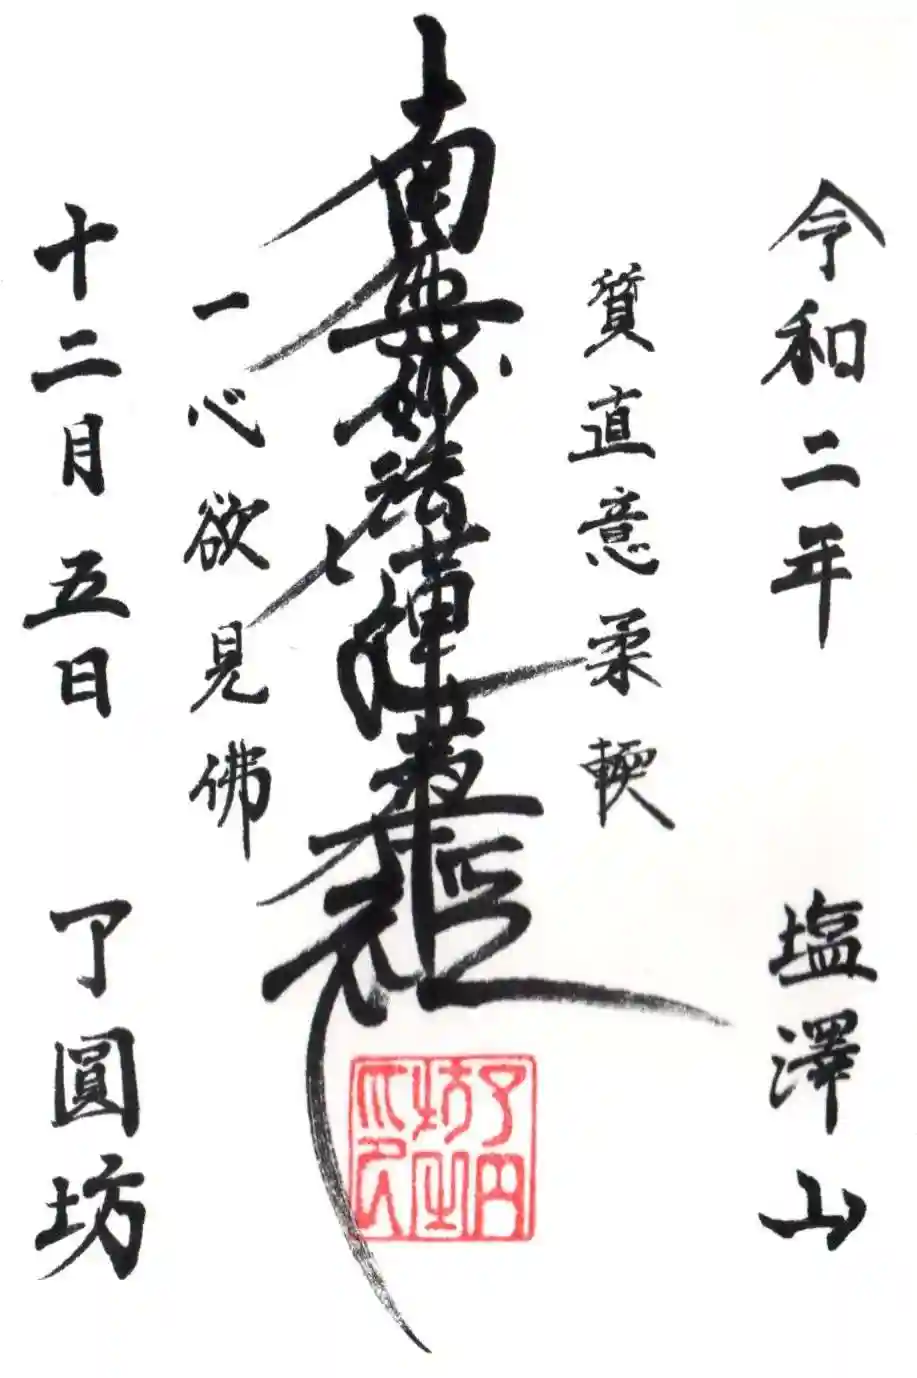 令和二年 塩澤山
質直意柔軟
南無妙法蓮華経
一心欲見佛
十二月五日 了圓坊
了円
坊主
印